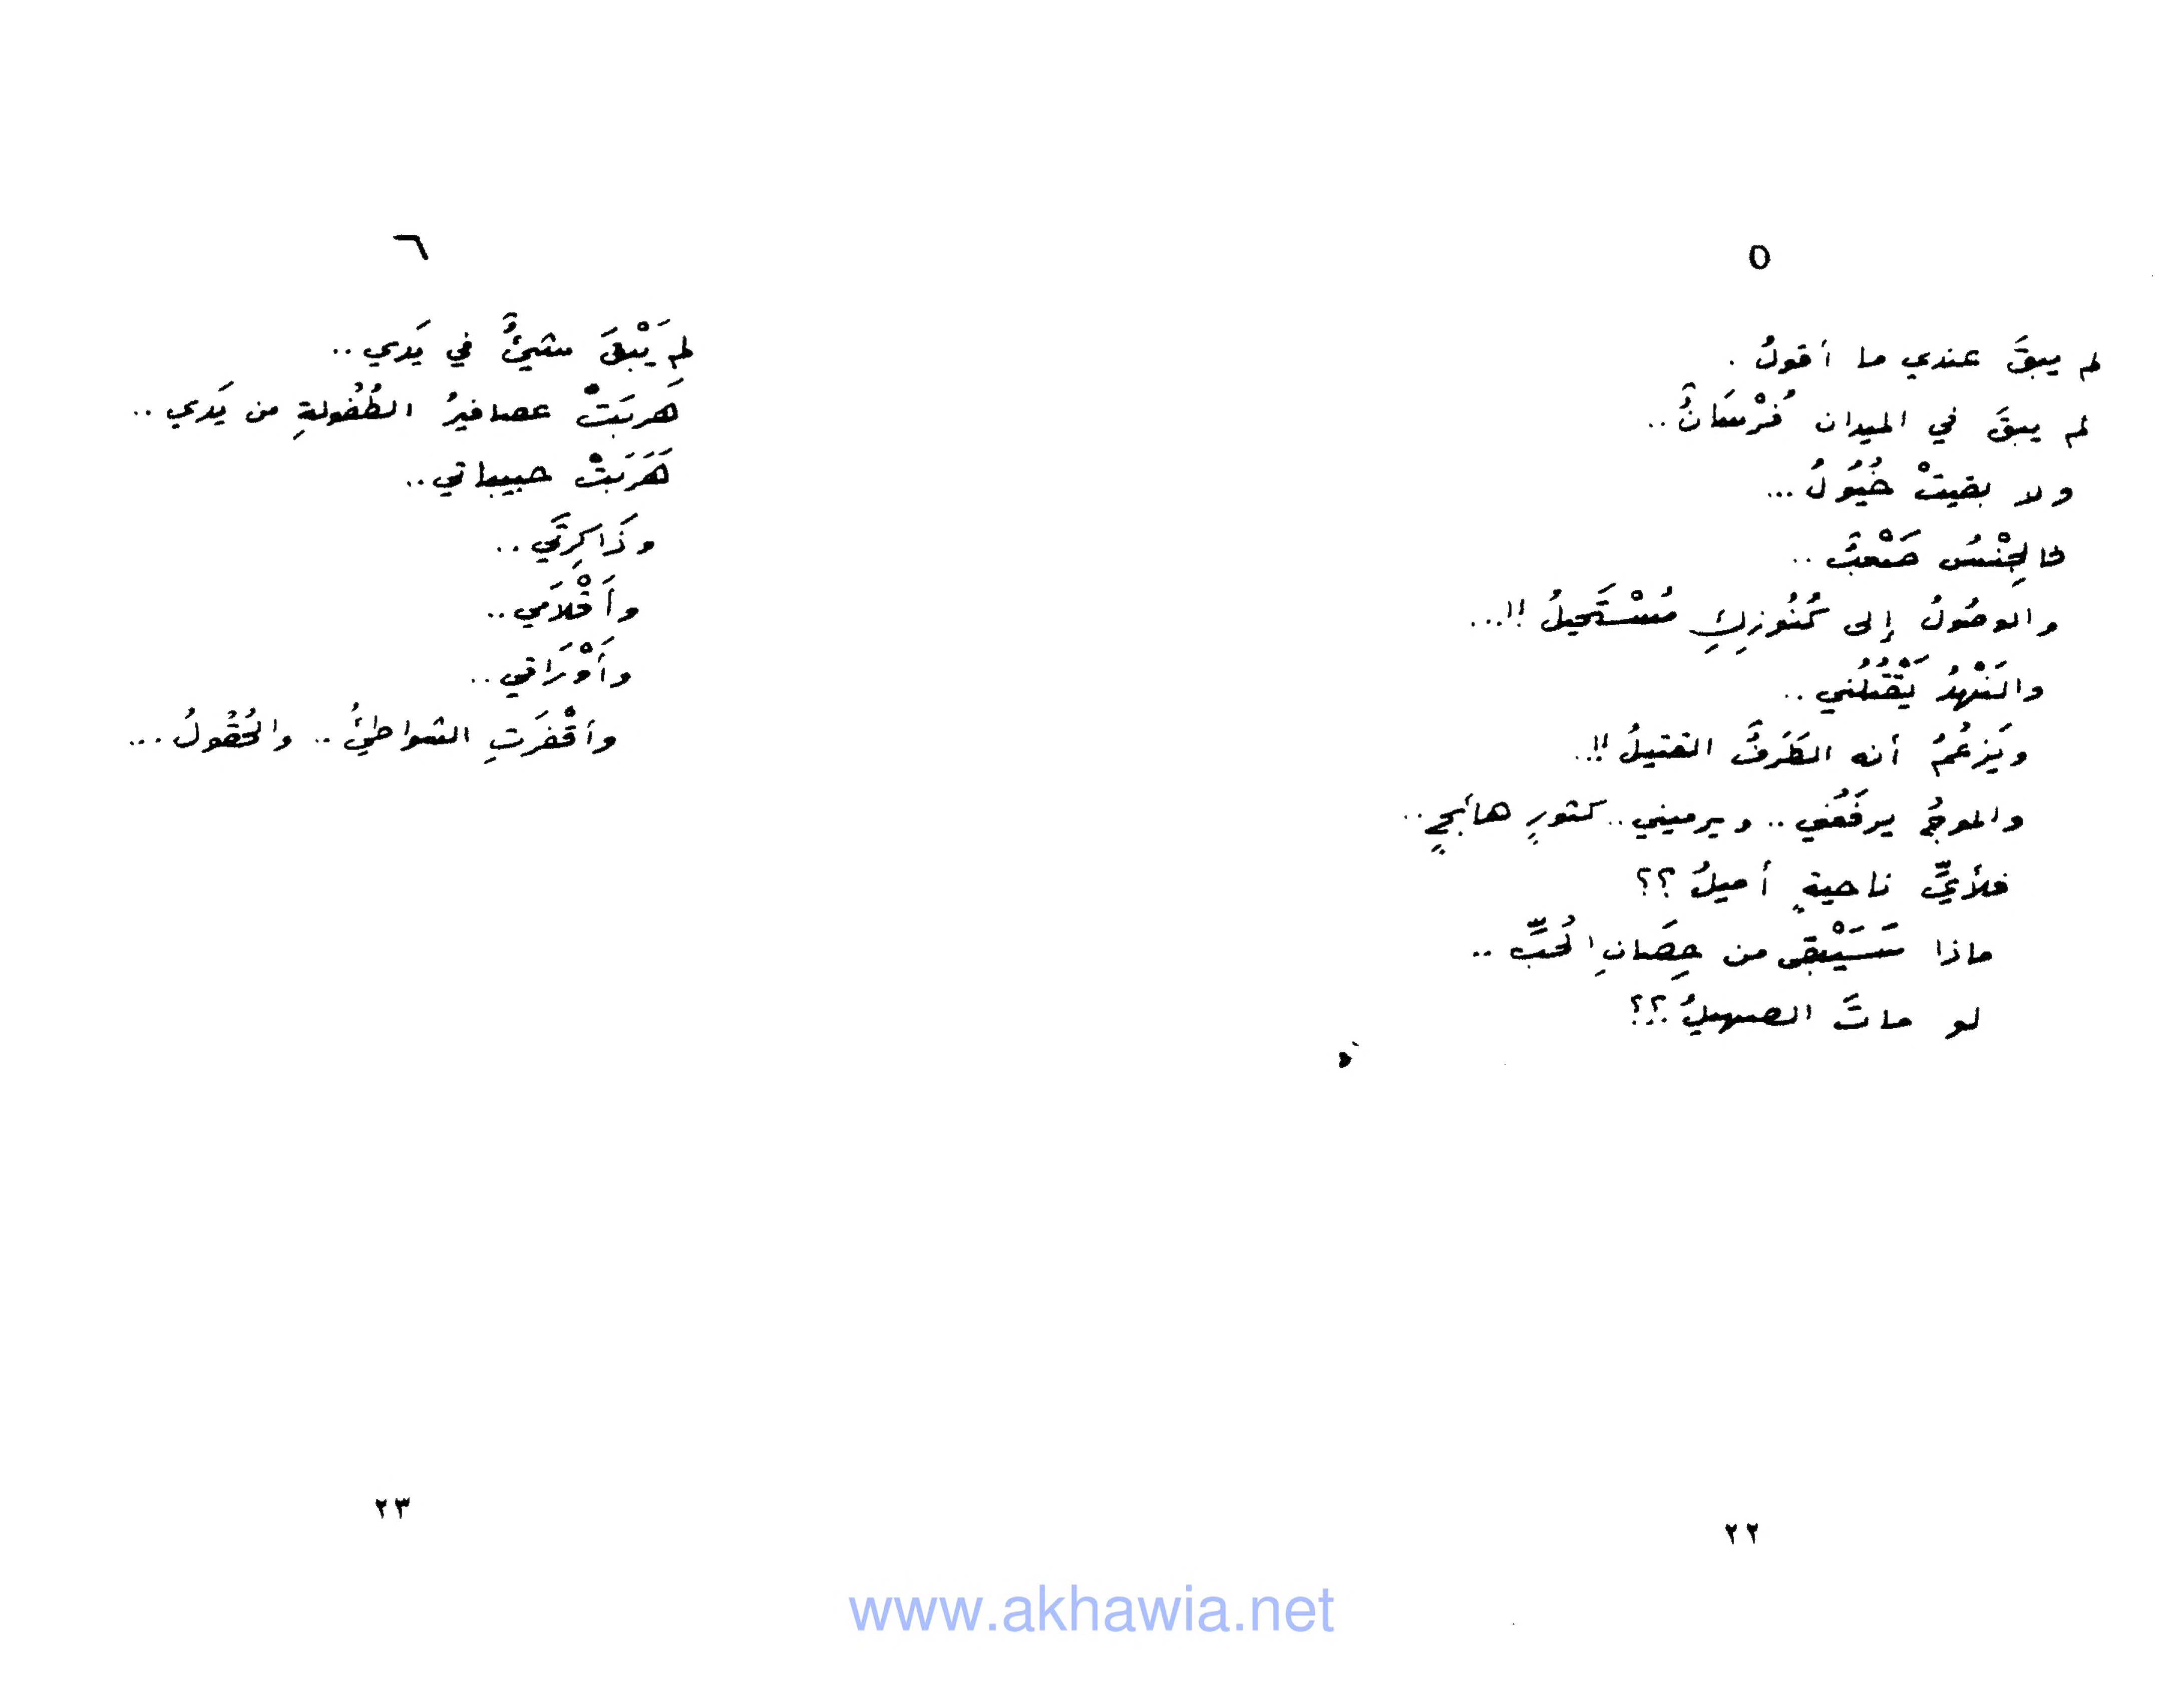 ٥
لم يبقَ عندي ما أقولُ .
لم يبقَ في الميدان فُرْسَانٌ ..
ولا بقيتْ خُيُولُ ...
فالجِنْسُ صَعْبٌ ..
والوصُولُ إلى كُنُوزِكِ مُسْتَحيلُ !!...
والنَهْدُ يَقْتُلُني ..
ويَزعُمُ أنه الطَرَفُ القتيلُ !!.
والموجُ يرفَعُني .. ويرميني .. كثورٍ هائجٍ ..
فلأيِّ ناحيةٍ أميلُ ؟؟
ماذا سَيَبْقى من حِصَانِ الحُبِّ ..
لو ماتَ الصهيلُ ؟؟
٢٢
٦
لم يَبْقَ شيءٌ في يَدي ..
هَربَتْ عصافيرُ الطُفُولةِ من يَدي ..
هَرَبَتْ حبيباتي ..
وذَاكِرَتي ..
وأَقْلَامي ..
وأَوْرَاقي ..
وأقْفَرَتِ الشواطئُ .. والحُقُولُ ...
٢٣
www.akhawia.net